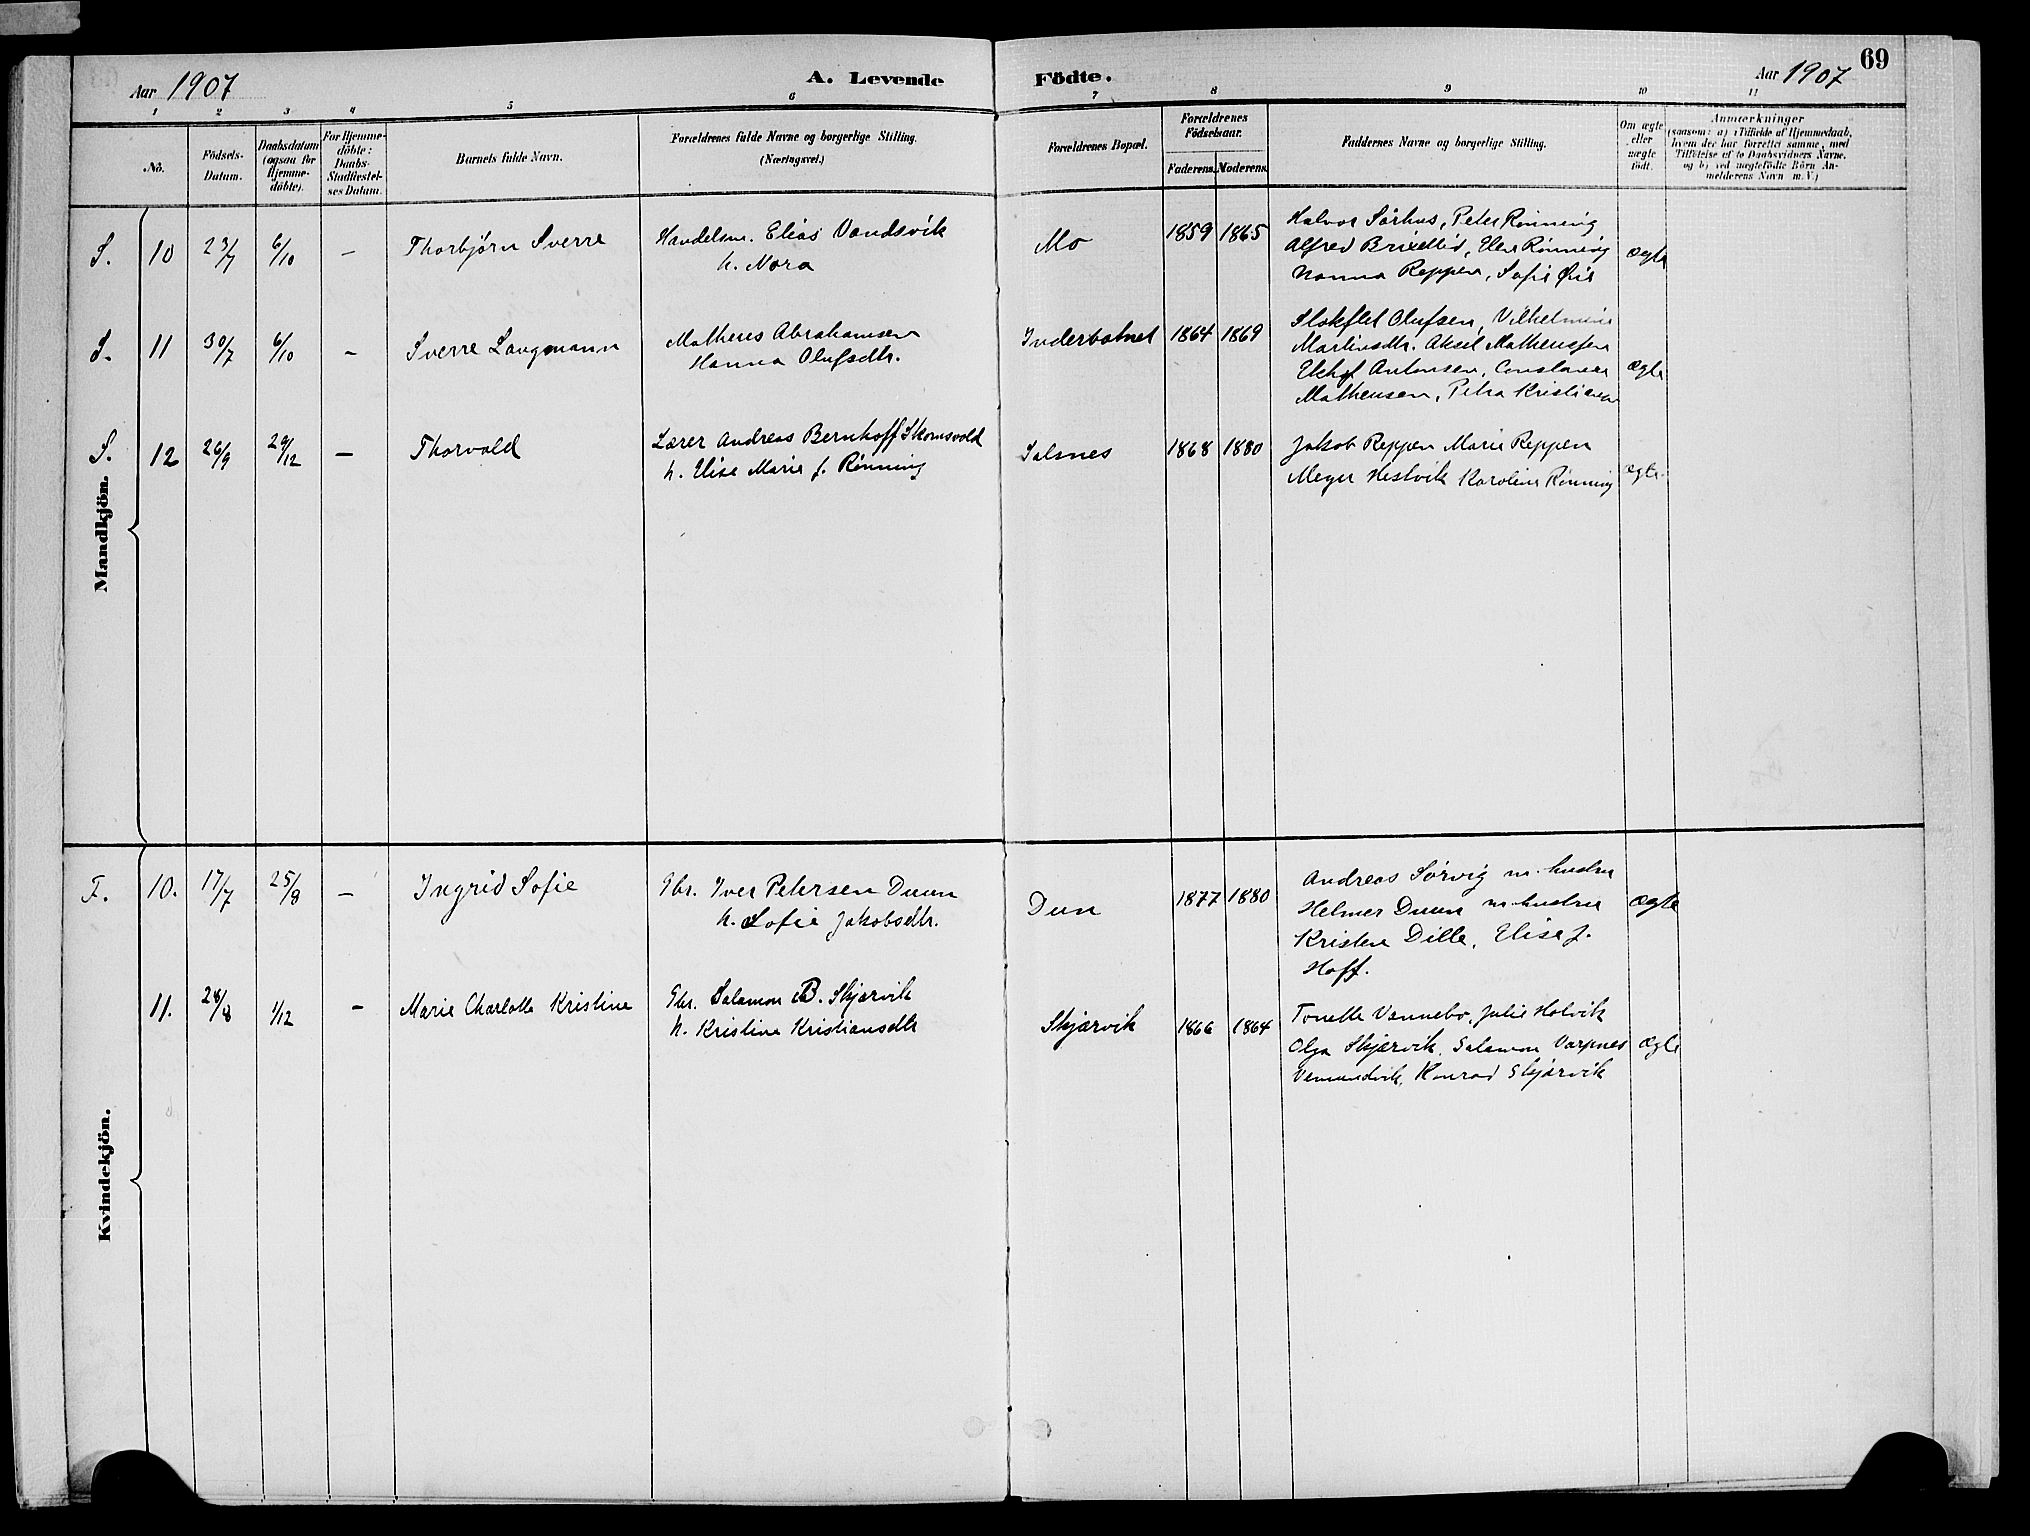 69
Aar 1907 A. Levende Födte. Aar 1907
1 2 3 4 5 6 7 8 9 10 11
No.
Födsels-Datum.
Daabsdatum (ogsaa for Hjemme-döbte).
For Hjemme-döbte: Daabs-Stadfæstel-ses Datum.
Barnets fulde Navn.
Forældrenes fulde Navne og borgerlige Stilling. (Næringsvei.)
Forældrenes Bopæl.
Forældrenes Födselsaar.
Faderens. Moderens.
Faddernes Navne og borgerlige Stilling.
Om ægte eller uægte födt.
Anmærkninger
(saasom: a) i Tilfælde af Hjemmedaab,
hvem der har forrettet samme, med
Tilföielse af to Daabsvidners Navne,
og b) ved uægtefödte Börn An-
melderens Navn m. V.)
Mandkjön.
S. 10 23/7 6/10 — Thorbjørn Sverre Handelsm. Elias Vandsvik Mo 1859 1865 Halvor Sørhus, Peter Rønning
h. Nora Alfred, Elen Rønning ægte
Nanna Reppen, Sofie Øie
S. 11 30/7 6/10 — Sverre Laugmann Matheus Abrahamsen 1864 1869 Olufsen, Vilhelmine
Hanna Olufsdtr. Martinsdtr. Aksel Matheussen
Antonsen, ægte
Matheusen, Petra Kristiansen
S. 12 26/9 29/12 — Thorvald Lærer Andreas Bernhoff Skomsvold Salsnes 1868 1880 Jakob Reppen Marie Reppen
h. Elise Marie f. Rønning Meyer Hestvik Karoline Rønning ægte
Kvindekjön.
F. 10. 17/7 25/8 — Ingrid Sofie Gbr. Iver Petersen Duun Dun 1877 1880 Andreas Sørvig m. hustru
h. Sofie Jakobsdtr. Helmer Duun m. hustru ægte
Kristen Dille, Elise J.
Hoff.
11. 28/8 1/12 — Marie Charlotte Kristine Gbr. Salamon B. Skjærvik Skjærvik 1866 1864 Tonette Vannebo, Julie Holvik
h. Kristine Kristiansdtr Olga Skjærvik, Salamon Varpnes ægte
Vemundvik, Konrad Skjærvik